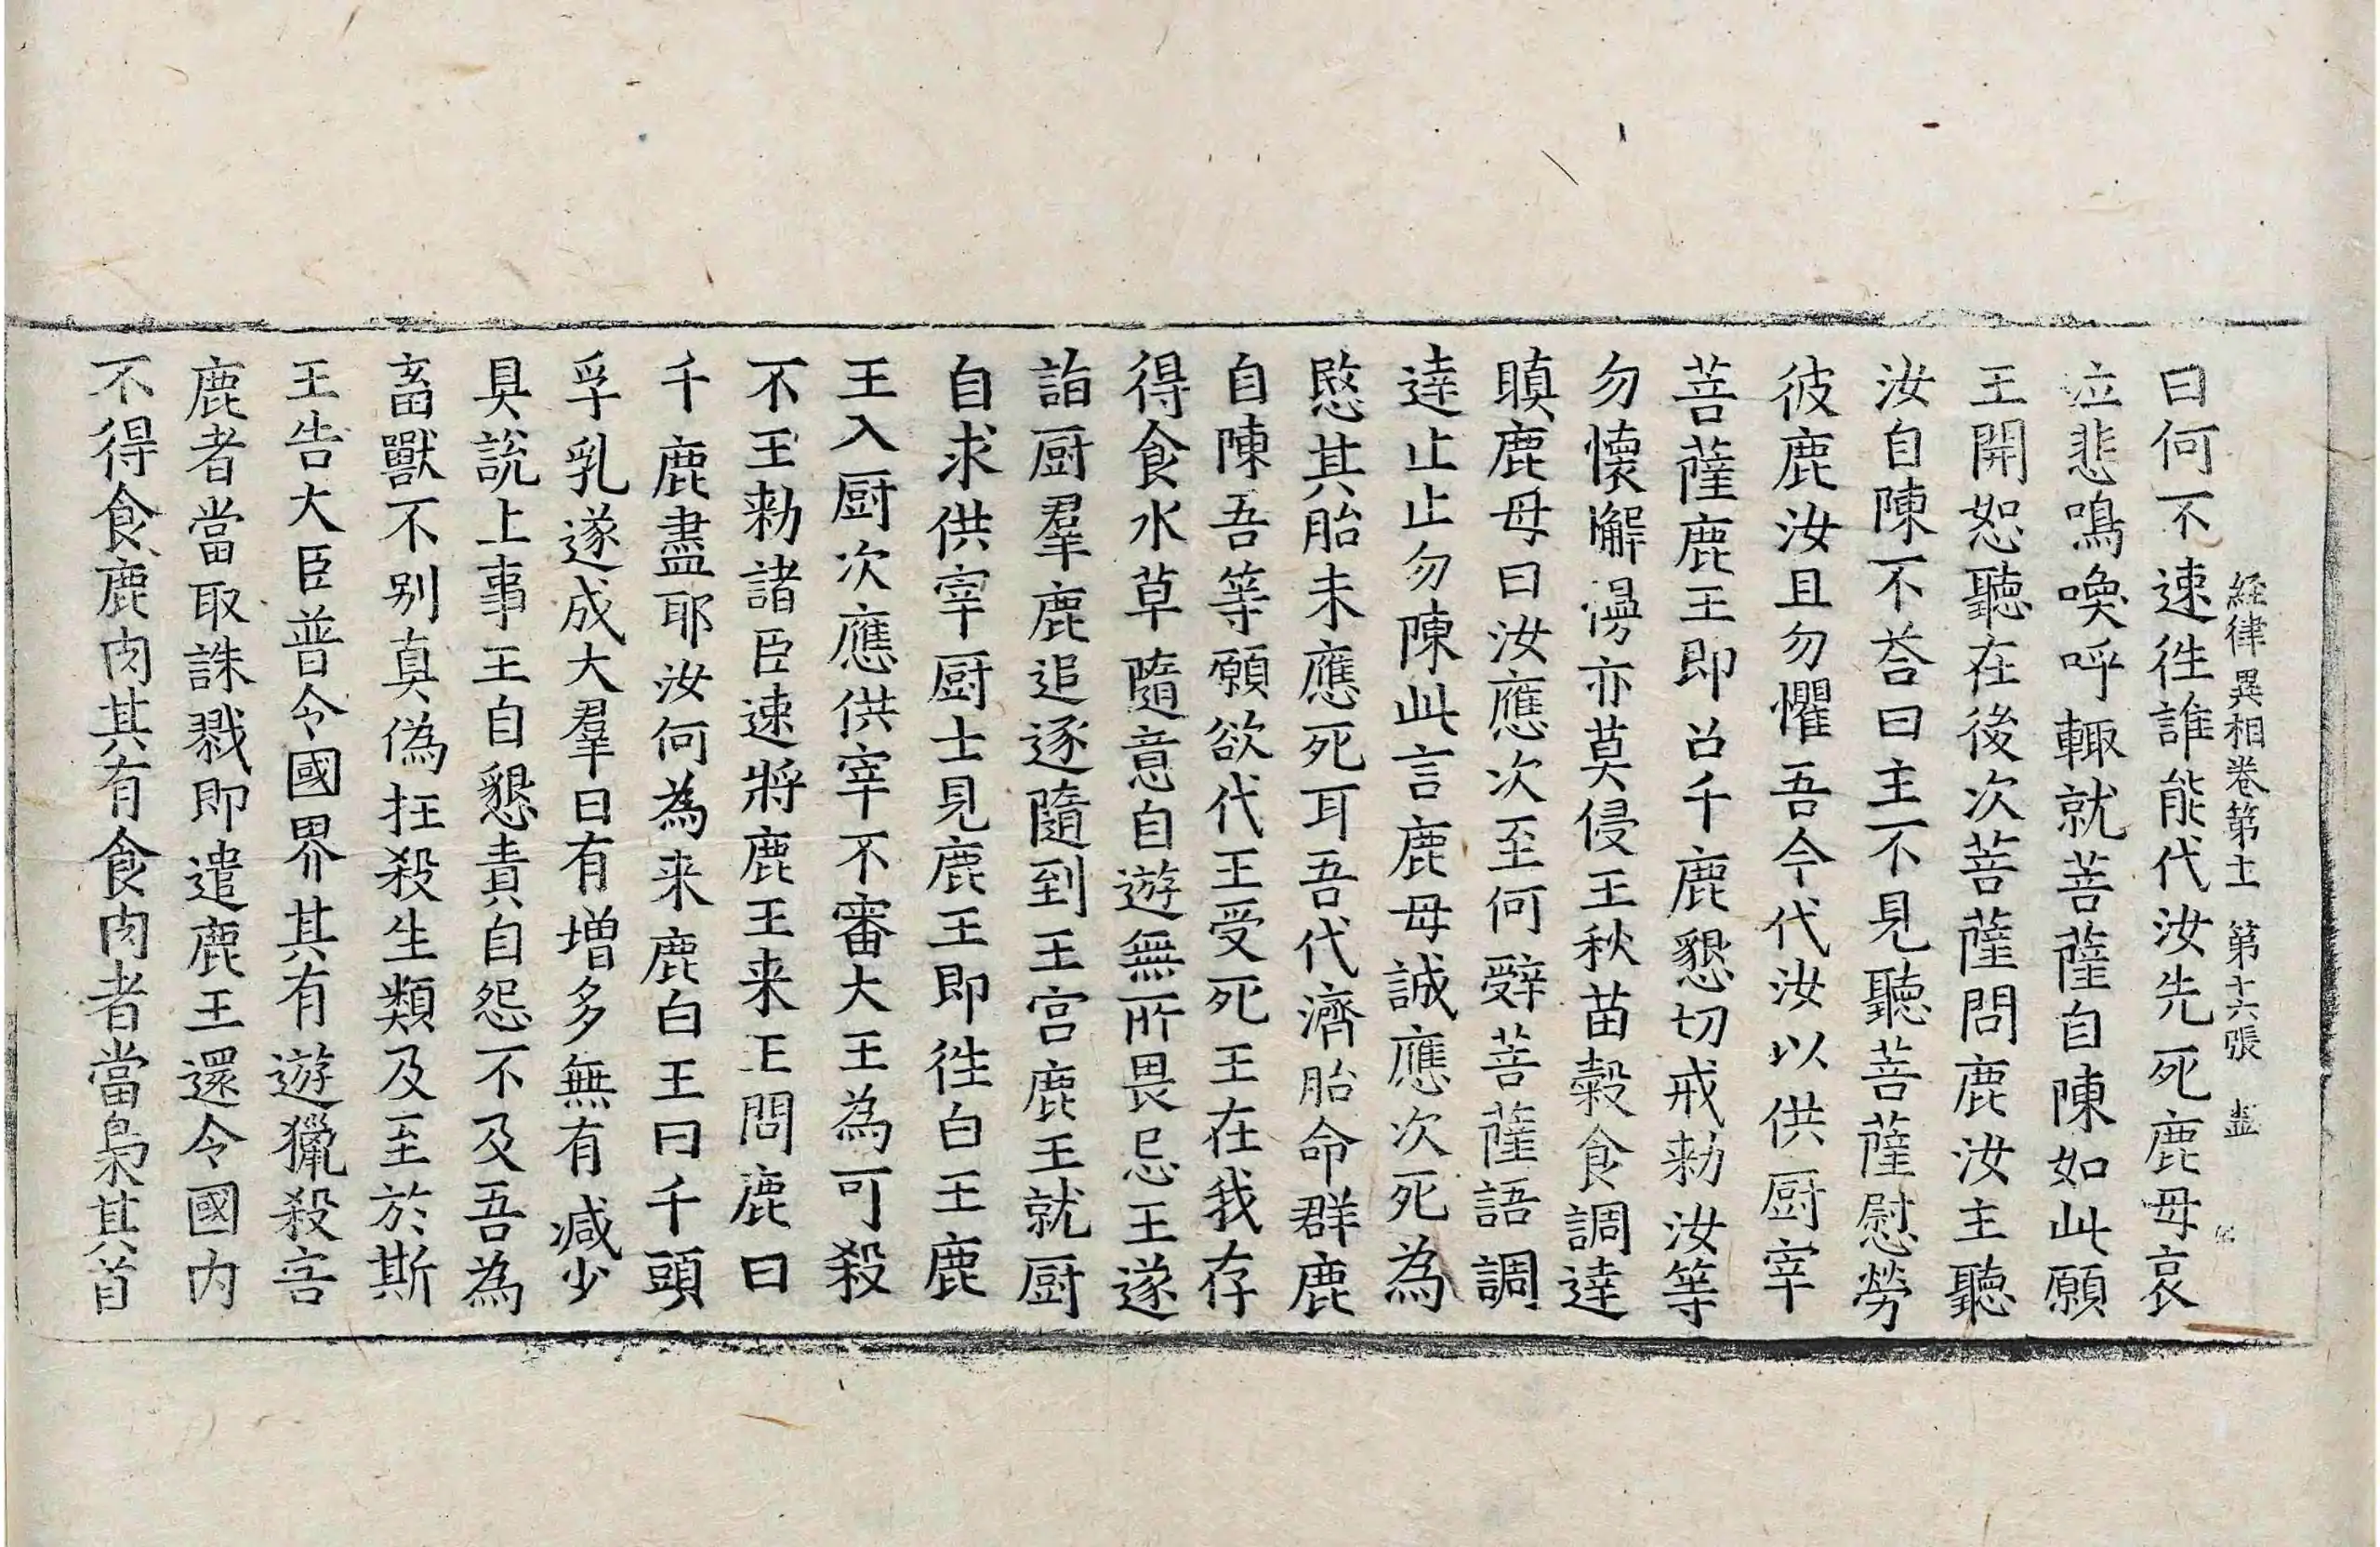 經律異相卷第十一 第十六張
曰何不速徃誰能代汝先死鹿母哀
泣悲鳴喚呼輙就菩薩自陳如此願
王開恕聽在後次菩薩問鹿汝主聽
汝自陳不荅曰主不見聽菩薩慰勞
彼鹿汝且勿懼吾今代汝以供厨宰
菩薩鹿王即召千鹿懇切戒勑汝等
勿懷懈慢亦莫侵王秋苗穀食調達
瞋鹿母曰汝應次至何辤菩薩語調
達止止勿陳此言鹿母誠應次死為
愍其胎未應死耳吾代濟胎命群鹿
自陳吾等願欲代王受死王在我存
得食水草隨意自遊無所畏忌王遂
詣厨羣鹿追逐隨到王宫鹿王就厨
自求供宰厨士見鹿王即徃白王鹿
王入厨次應供宰不審大王為可殺
不王勑諸臣速將鹿王来王問鹿曰
千鹿盡耶汝何為来鹿白王曰千頭
孚乳遂成大羣日有增多無有减少
具說上事王自懇責自怨不及吾為
畜獸不别真偽抂殺生類及至於斯
王告大臣普令國界其有遊獵殺害
鹿者當取誅戮即遣鹿王還令國内
不得食鹿肉其有食肉者當梟其首